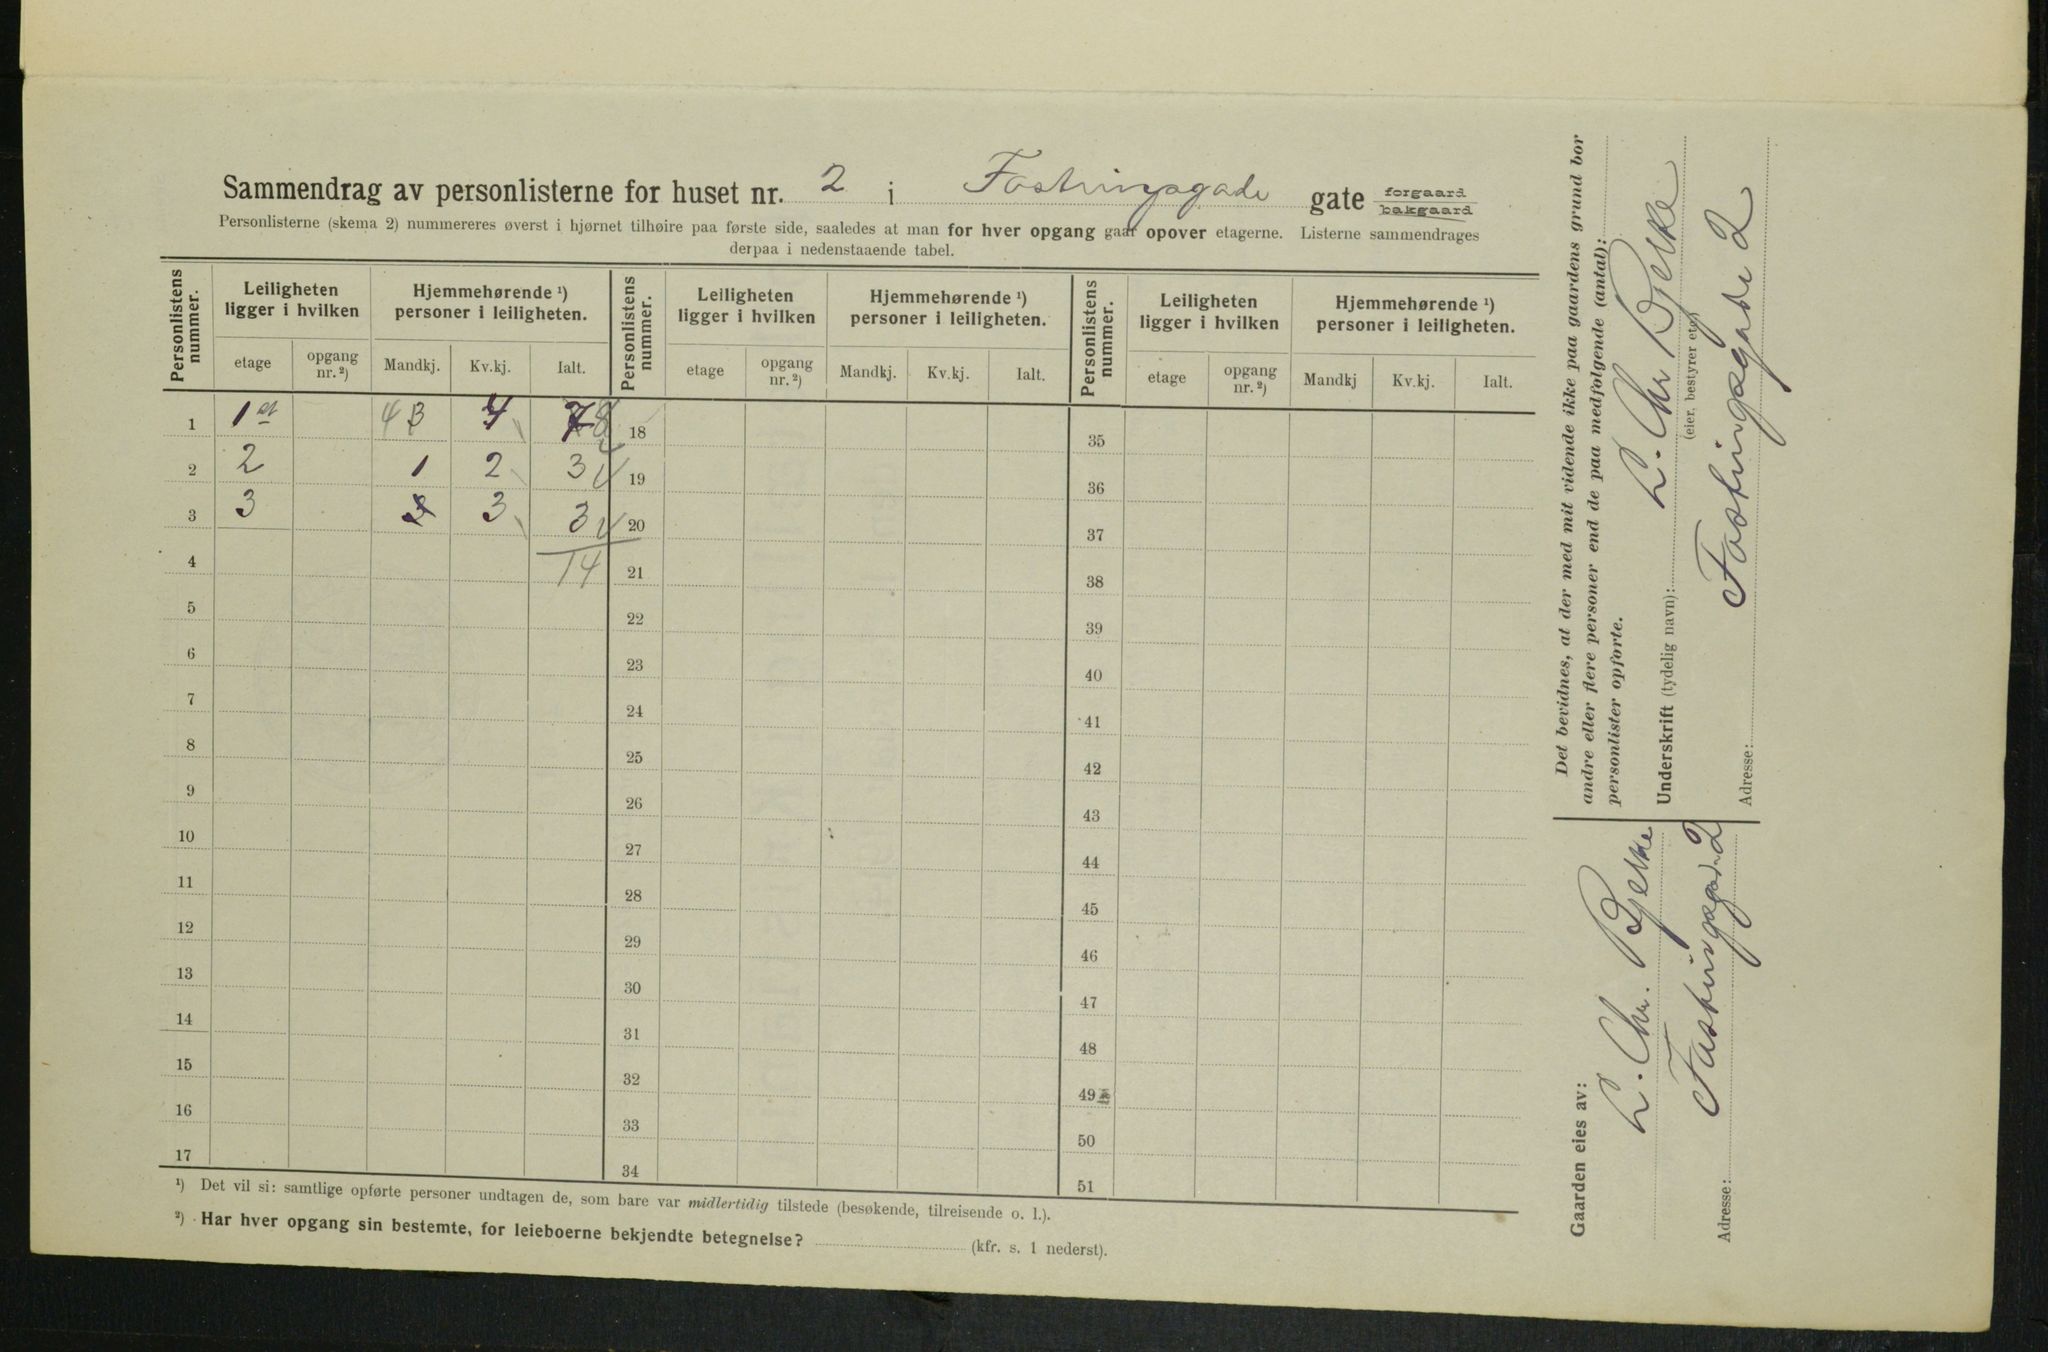 Sammendrag av personlisterne for huset nr. 2 i Fastingsgade gate forgaard bakgaard
Personlisterne (skema 2) nummereres øverst i hjørnet tilhøire paa første side, saaledes at man for hver opgang gaar opover etagerne. Listerne sammendrages
derpaa i nedenstaaende tabel.
Personlistens nummer. Leiligheten ligger i hvilken Hjemmehørende ¹) personer i leiligheten. Personlistens nummer. Leiligheten ligger i hvilken Hjemmehørende ¹) personer i leiligheten. Personlistens nummer. Leiligheten ligger i hvilken Hjemmehørende ¹) personer i leiligheten.
etage opgang nr. ²) Mandkj. Kv.kj. Ialt. etage opgang nr. ²) Mandkj. Kv.kj. Ialt. etage opgang nr. ²) Mandkj Kv.kj. Ialt.
1 1 et 4 3 4 7 8 18 35
2 2 1 2 3 19 36
3 3 3 3 20 37
4 14 21 38
5 22 39
6 23 40
7 24 41
8 25 42
9 26 43
10 27 44
11 28 45
12 29 46
13 30 47
14 31 48
15 32 49
16 33 50
17 34 51
¹) Det vil si: samtlige opførte personer undtagen de, som bare var midlertidig tilstede (besøkende, tilreisende o. l.).
²) Har hver opgang sin bestemte, for leieboerne bekjendte betegnelse? (kfr. s. 1 nederst).
Det bevidnes, at der med mit vidende ikke paa gaardens grund bor
andre eller flere personer end de paa medfølgende (antal):
personlister opførte.
L. Chr Bjelke
Underskrift (tydelig navn):
(eier, bestyrer etc.)
Fastingsgade 2
Adresse:
Gaarden eies av:
L. Chr. Bjelke
Fastingsgad. 2
Adresse: